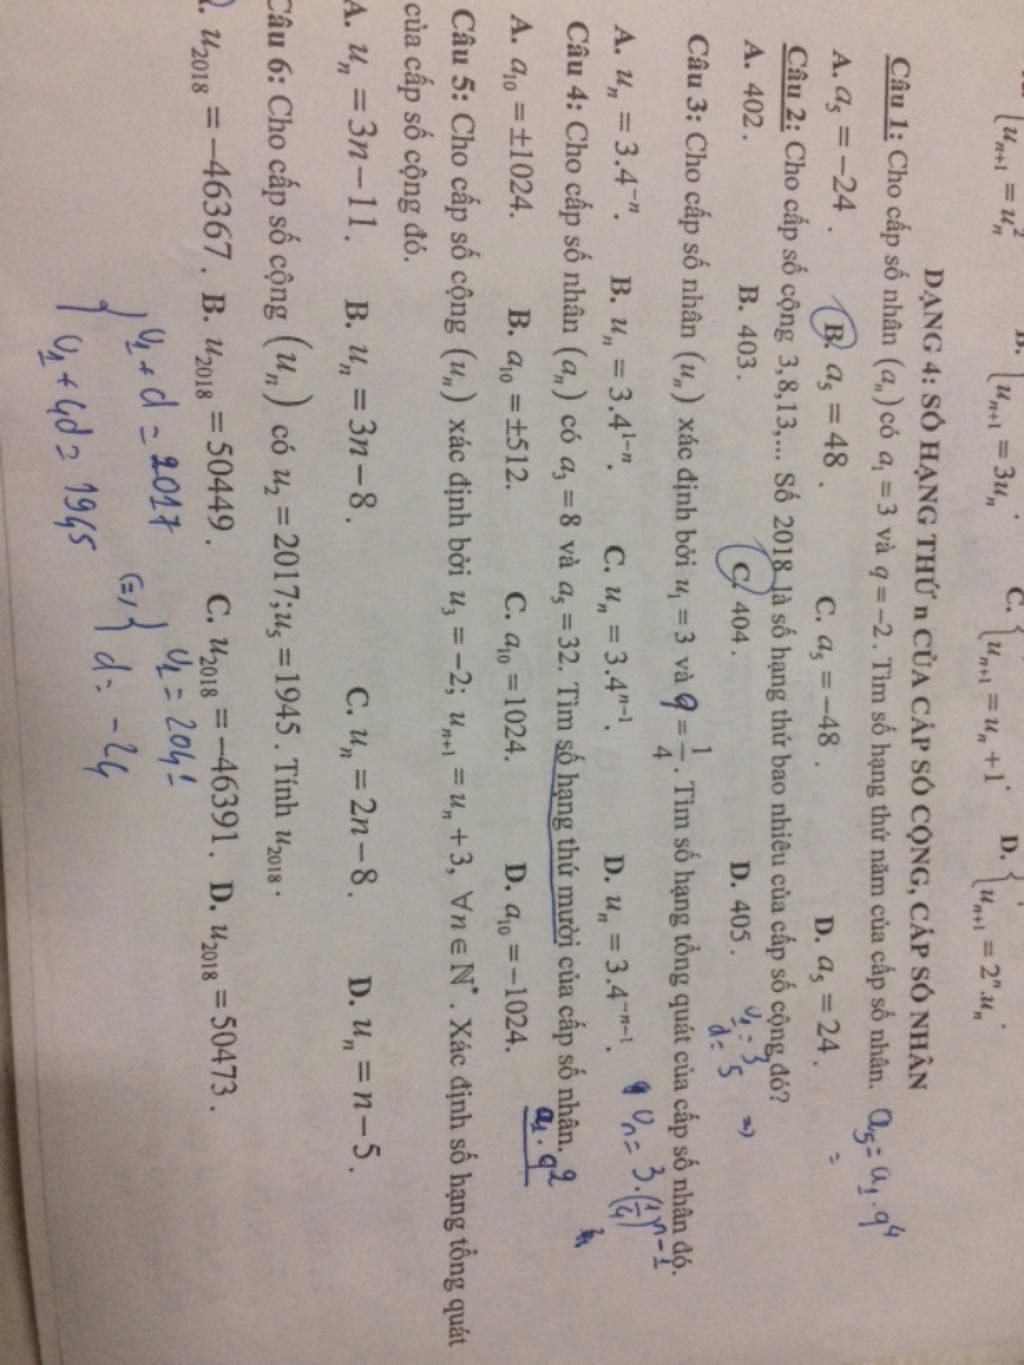 B. { u_{n+1} = 3u_n .
C. { u_{n+1} = u_n + 1 .
D. { u_{n+1} = 2^n.u_n .
{ u_{n+1} = u_n^2
DẠNG 4: SỐ HẠNG THỨ n CỦA CẤP SỐ CỘNG, CẤP SỐ NHÂN
Câu 1: Cho cấp số nhân (a_n) có a_1 = 3 và q = −2. Tìm số hạng thứ năm của cấp số nhân. a_5 = a_1 . q^4
A. a_5 = −24 . B. a_5 = 48 . C. a_5 = −48 . D. a_5 = 24 . =
Câu 2: Cho cấp số cộng 3,8,13,... Số 2018 là số hạng thứ bao nhiêu của cấp số cộng đó?
A. 402 . B. 403 . C. 404 . D. 405 . u_1 = 3 d = 5 ⇒
Câu 3: Cho cấp số nhân (u_n) xác định bởi u_1 = 3 và q = 1/4 . Tìm số hạng tổng quát của cấp số nhân đó.
A. u_n = 3.4^{−n} . B. u_n = 3.4^{1−n} . C. u_n = 3.4^{n−1} . D. u_n = 3.4^{−n−1} . u_n = 3.(1/4)^{n−1}
Câu 4: Cho cấp số nhân (a_n) có a_3 = 8 và a_5 = 32. Tìm số hạng thứ mười của cấp số nhân.
A. a_10 = ±1024. B. a_10 = ±512. C. a_10 = 1024. D. a_10 = −1024. a_1 . q^2
Câu 5: Cho cấp số cộng (u_n) xác định bởi u_3 = −2; u_{n+1} = u_n + 3, ∀n ∈ ℕ*. Xác định số hạng tổng quát
của cấp số cộng đó.
A. u_n = 3n − 11. B. u_n = 3n − 8 . C. u_n = 2n − 8 . D. u_n = n − 5 .
Câu 6: Cho cấp số cộng (u_n) có u_2 = 2017; u_5 = 1945 . Tính u_2018 .
A. u_2018 = −46367 . B. u_2018 = 50449 . C. u_2018 = −46391 . D. u_2018 = 50473 .
{ u_1 + d = 2017 (=) { u_1 = 2041
u_1 + 4d = 1945 d = −24